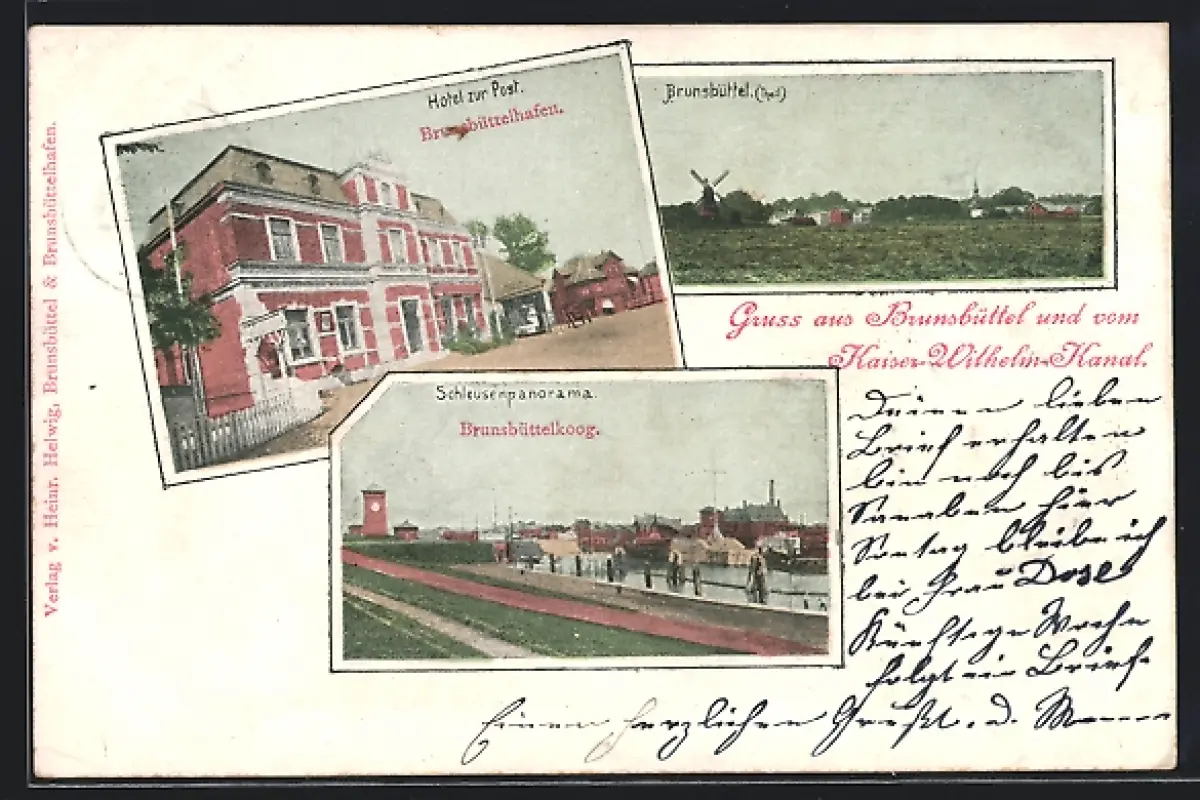 Verlag v. Heinr. Helwig, Brunsbüttel & Brunsbüttelhafen.
Hotel zur Post.
Brunsbüttelhafen.
Brunsbüttel. (Theil)
Gruss aus Brunsbüttel und vom
Kaiser-Wilhelm-Kanal.
Schleusenpanorama.
Brunsbüttelkoog.
Deinen lieben
Brief erhalten
bin noch bis
hier
Sontag bleibe ich
bei Frau Dose
Künftige Woche
folgt ein Brief.
Einen herzlichen Gruß